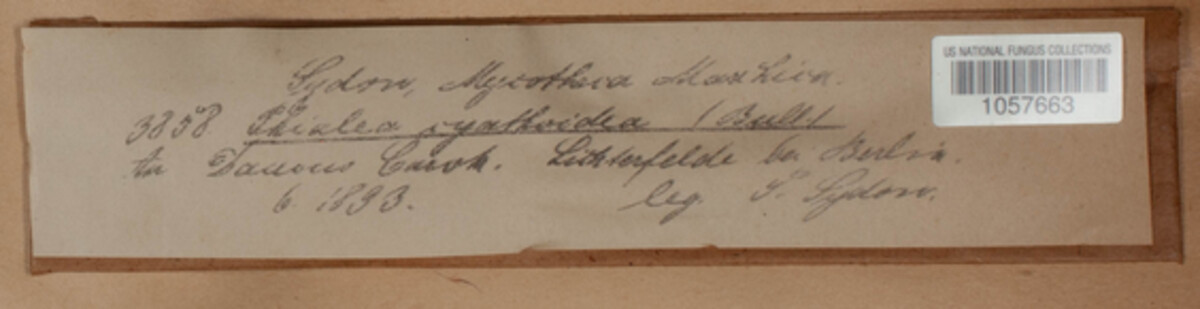 Sydow, Mycotheca Marchica.
3858. Phialea cyathoidea (Bull.)
An Daucus Carota. Lichterfelde bei Berlin.
6. 1893. leg. P. Sydow.
US NATIONAL FUNGUS COLLECTIONS
1057663